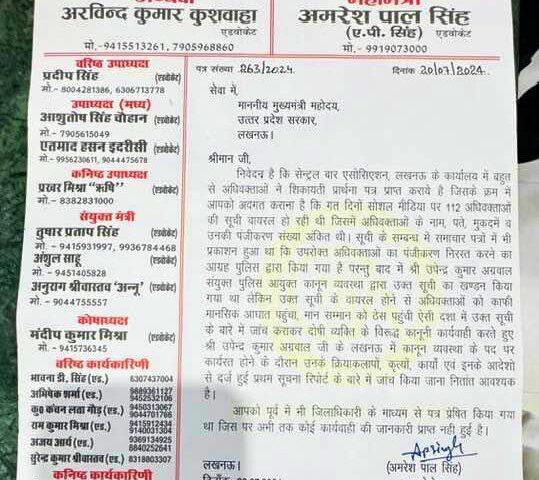 अध्यक्ष
अरविन्द कुमार कुशवाहा
एडवोकेट
मो.-9415513261, 7905968860
महामंत्री
अमरेश पाल सिंह
(ए.पी. सिंह) एडवोकेट
मो.-9919073000
वरिष्ठ उपाध्यक्ष
प्रदीप सिंह (एडवोकेट)
मो.- 8004281386, 6306713778
उपाध्यक्ष (मध्य)
आशुतोष सिंह चौहान (एडवोकेट)
मो.- 7905615049
एतमाद हसन इदरीसी (एडवोकेट)
मो.- 9956230611, 9044475678
कनिष्ठ उपाध्यक्ष
प्रखर मिश्रा “ऋषि” (एडवोकेट)
मो.- 8382831000
संयुक्त मंत्री
तुषार प्रताप सिंह (एडवोकेट)
मो.- 9415931997, 9936784468
अंशुल साहू (एडवोकेट)
मो.- 9451405828
अनुराग श्रीवास्तव ‘अन्नू’ (एडवोकेट)
मो.- 9044755557
कोषाध्यक्ष
मंदीप कुमार मिश्रा (एडवोकेट)
मो.- 9415736345
वरिष्ठ कार्यकारिणी
भावना डी. सिंह(एड.) 6307437004
अभिषेक शर्मा (एड.) 9889361127
9452532106
कु0 कंचन लता गौड़ (एड.) 9450313067
9044701786
राम कुमार मिश्रा (एड.) 9415912434
9140031304
अजय आर्य (एड.) 9369134925
8840252641
सुरेन्द्र कुमार श्रीवास्तव (एड.) 8318803307
कनिष्ठ कार्यकारिणी
पत्र संख्या 263/2024
दिनांक 20/07/2024
सेवा में,
माननीय मुख्यमंत्री महोदय,
उत्तर प्रदेश सरकार,
लखनऊ।
श्रीमान जी,
निवेदन है कि सेन्ट्रल बार एसोसिएशन, लखनऊ के कार्यालय में बहुत
से अधिवक्ताओं ने शिकायती प्रार्थना पत्र प्राप्त कराये है जिसके क्रम में
आपको अवगत कराना है कि गत दिनों सोशल मीडिया पर 112 अधिवक्ताओं
की सूची वायरल हो रही थी जिसमें अधिवक्ताओं के नाम, पते, मुकदमें व
उनकी पंजीकरण संख्या अंकित थी। सूची के सम्बन्ध में समाचार पत्रों में भी
प्रकाशन हुआ था कि उपरोक्त अधिवक्ताओं का पंजीकरण निरस्त करने का
आग्रह पुलिस द्वारा किया गया है परन्तु बाद में श्री उपेन्द्र कुमार अग्रवाल
संयुक्त पुलिस आयुक्त कानून व्यवस्था द्वारा उक्त सूची का खण्डन किया
गया था लेकिन उक्त सूची के वायरल होने से अधिवक्ताओं को काफी
मानसिक आघात पहुंचा, मान सम्मान को ठेस पहुंची ऐसी दशा में उक्त सूची
के बारे में जांच कराकर दोषी व्यक्ति के विरूद्ध कानूनी कार्यवाही करते हुए
श्री उपेन्द्र कुमार अग्रवाल के लखनऊ में कानून व्यवस्था के पद पर
कार्यरत होने के दौरान उनके क्रियाकलापों, कृत्यों, कार्यों एवं इनके आदेशो
से दर्ज हुई प्रथम सूचना रिपोर्ट के बारे में जांच किया जाना नितांत आवश्यक
है।
आपको पूर्व में भी जिलाधिकारी के माध्यम से पत्र प्रेषित किया गया
था जिस पर अभी तक कोई कार्यवाही की जानकारी प्राप्त नही हुई है।
APSingh
लखनऊ
(अमरेश पाल सिंह)